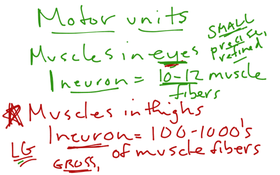 Motor units
SMALL
precise,
refined
Muscles in eyes
1 neuron = 10-12 muscle
fibers
Muscles in thighs
1 neuron = 100-1000's
of muscle fibers
LG
GROSS,